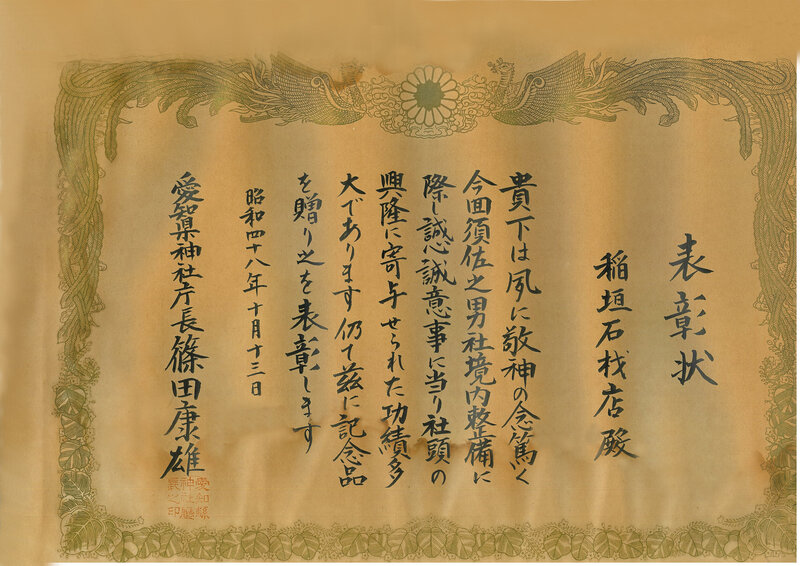 表彰状
稲垣石材店殿
貴下は夙に敬神の念篤く
今回須佐之男社境内整備に
際し誠心誠意事に当り社頭の
興隆に寄与せられた功績多
大であります仍て茲に記念品
を贈り之を表彰します
昭和四十八年十月十三日
愛知県神社庁長篠田康雄
愛知縣
神社廳
長之印